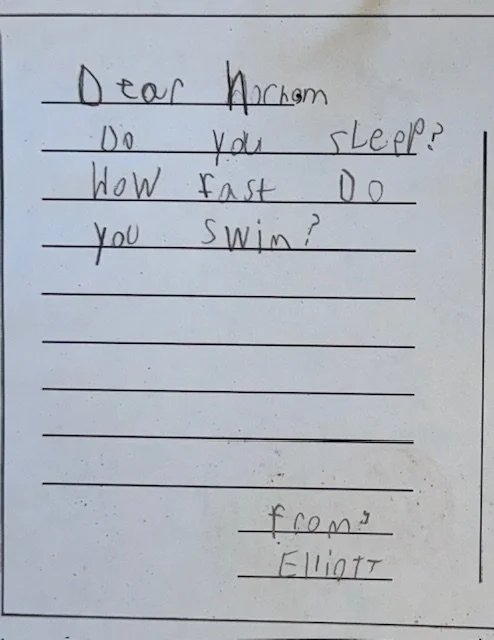 Dear Norhom
Do you sleep?
How fast Do
you swim?
from:
Elliott